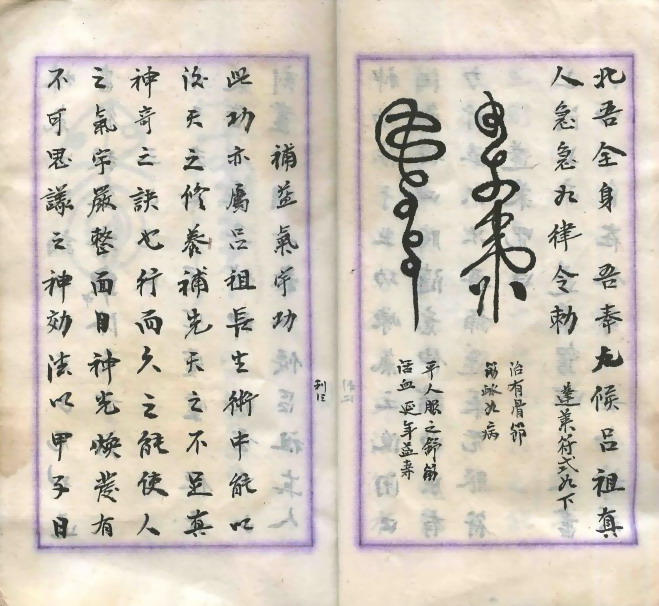 北吾全身 吾奉 候吕祖真
人急急如律令勅
蓬萊符式如下
治有骨節
筋脉如病
平人服之舒筋
活血延年益寿
補益氣宇功
此功亦屬吕祖長生術中能以
後天之修養補先天之不足真
神奇之訣也行而久之能使人
之氣宇嚴整面目神光煥發有
不可思議之神効法以甲子日